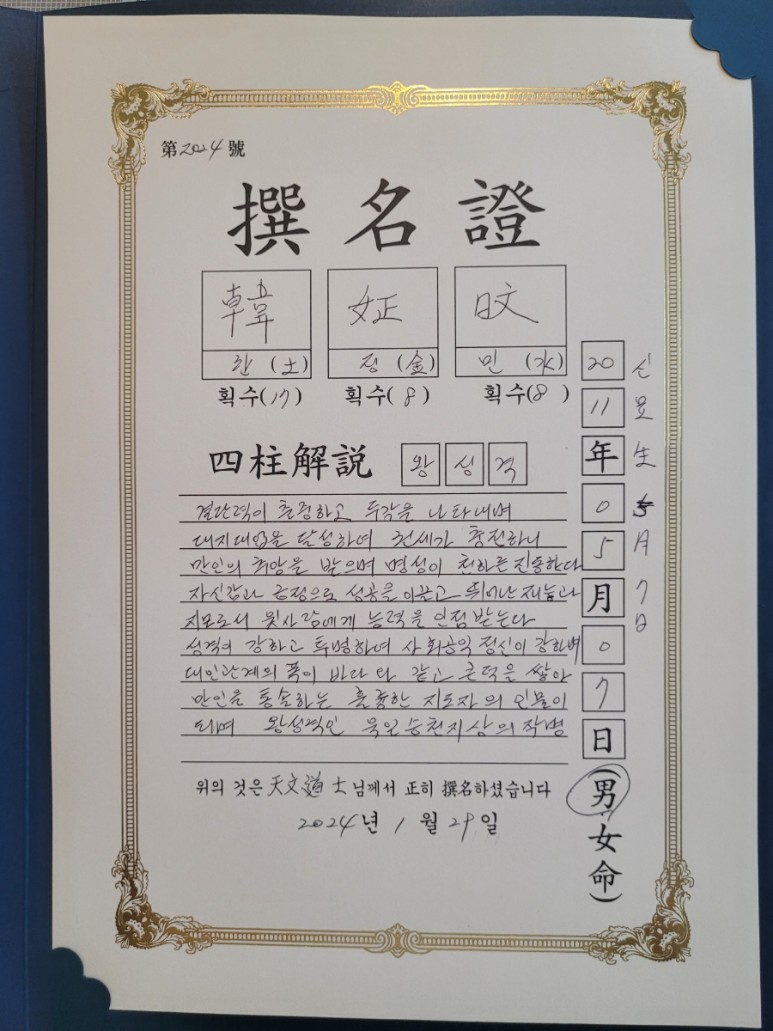 第2024號
撰名證
韓 姃 旼
한(土) 정(金) 민(水)
획수(17) 획수(8) 획수(8)
20 11 年 05 月 07 日 (男女命)
신묘生 5月 7日
四柱解說 왕성격
결단력이 출중하고 두각을 나타내며
대지대업을 달성하여 천세가 충전하니
만인의 희망을 받으며 명성이 천하를 진중한다
자신감과 긍정으로 성공을 이끌고 뛰어난 재능과
지모로서 뭇사람에게 능력을 인정받는다
성격이 강하고 투명하여 사회공익 정신이 강하며
대인관계의 폭이 바다와 같고 큰덕을 쌓아
만인을 통솔하는 훌륭한 지도자의 인물이
되며 왕성격인 욱일승천지상의 작명
위의 것은 天文道士님께서 正히 撰名하셨습니다
2024년 1월 29일